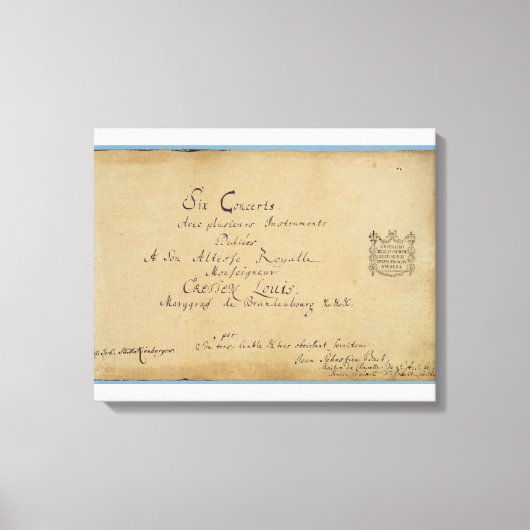 Six Concerts
Avec plusieurs Instruments
Dediées
A Son Altesse Royalle
Monseigneur
CRETIEN LOUIS.
Marggraf de Brandenbourg &c.&c.&c.
par
Son tres humble & tres obeissant serviteur
Jean Sebastien Bach.
Maitre de Chapelle de S. A. S. le
AMALIA
Joh. Phil. Kirnberger